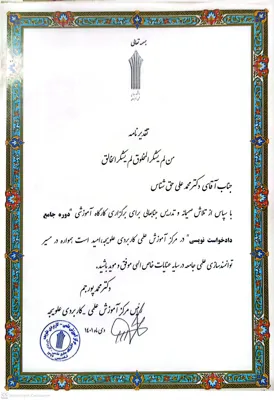 بسمه تعالی
تقدیرنامه
من لم یشکر المخلوق لم یشکر الخالق
جناب آقای دکتر محمد علی حق شناس
با سپاس از تلاش صمیمانه و تدریس جنابعالی برای برگزاری کارگاه آموزشی "دوره جامع
دادخواست نویسی" در مرکز آموزش علمی کاربردی علویجه، امید است همواره در مسیر
توانمندسازی علمی جامعه در سایه عنایات خاص الهی موفق و موید باشید.
دکتر محمد پورجم
مرکز آموزش علمی - کاربردی علویجه
دی ماه ۱۴۰۱